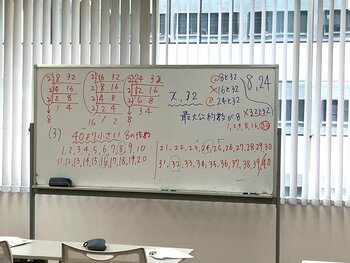 2) 8 32
2) 4 16
2) 2 8
1 4
8
2) 16 32
2) 8 16
2) 4 8
2) 2 4
16 1 2
2) 24 32
2) 12 16
2) 6 8
3 4
8
x, 32
8と32
×16と32
24と32
×32と32
8, 24
最大公約数が8
1, 2, 4, 8, 16, 32
(3) 40より小さい 8の倍数
1, 2, 3, 4, 5, 6, 7, 8, 9, 10
11, 12, 13, 14, 15, 16, 17, 18, 19, 20
21, 22, 23, 24, 25, 26, 27, 28, 29, 30
31, 32, 33, 34, 35, 36, 37, 38, 39, 40